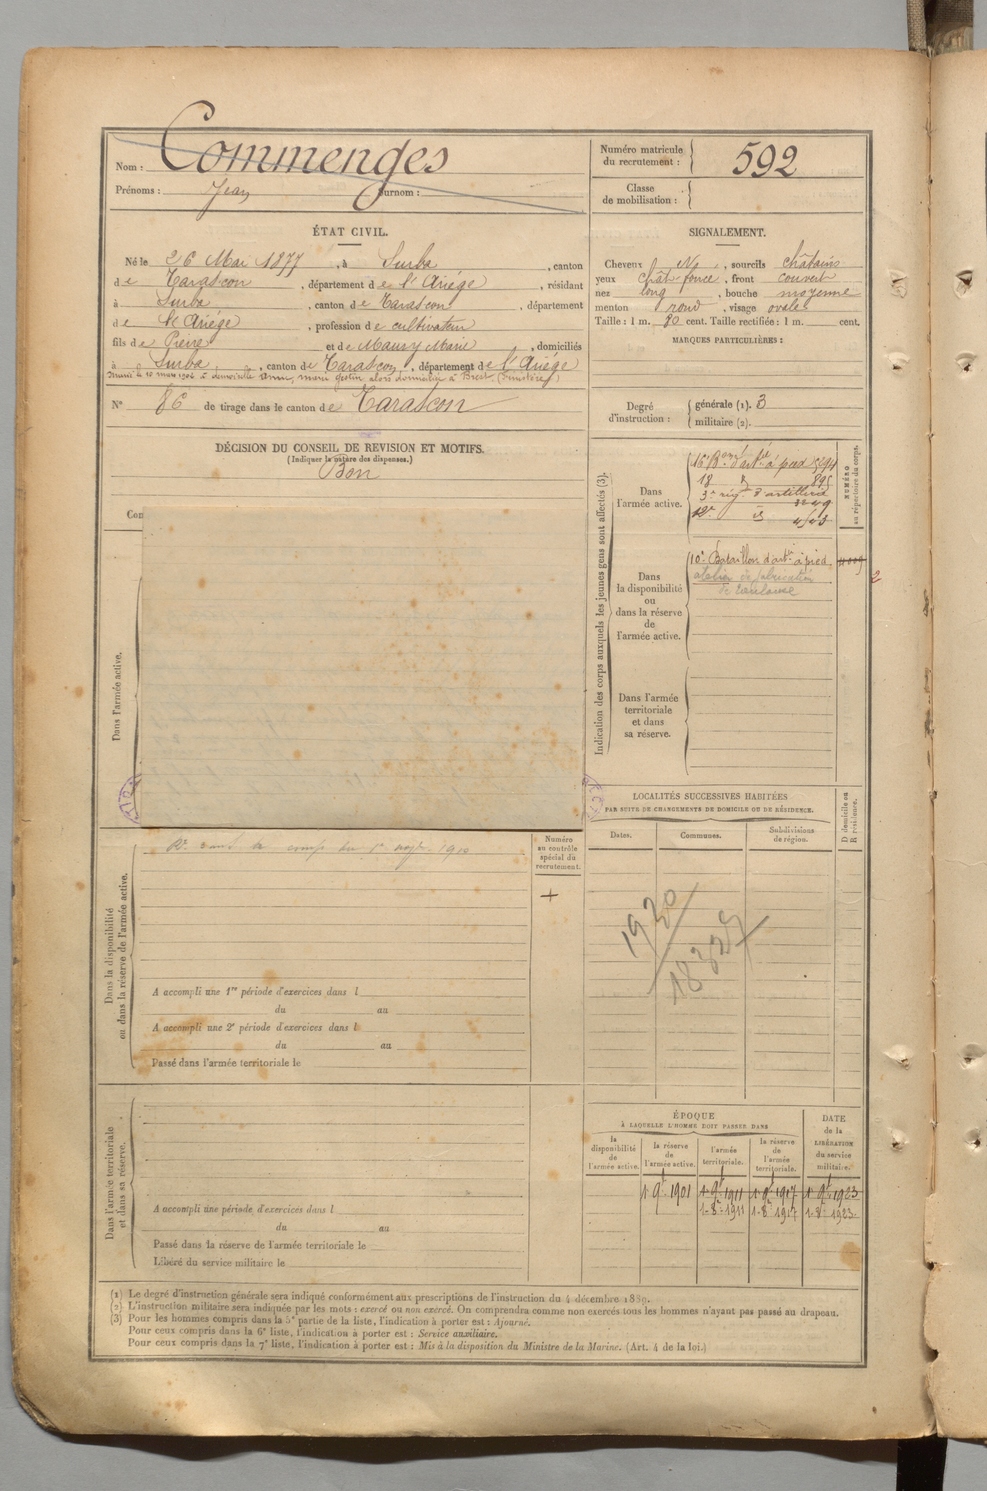 Nom : Commenges
Prénoms : Jean Surnom :
Numéro matricule du recrutement : 592
Classe de mobilisation :
ÉTAT CIVIL.
Né le 26 Mai 1877, à Surba, canton
de Tarascon, département de l'Ariége, résidant
à Surba, canton de Tarascon, département
de l'Ariége, profession de cultivateur
fils de Pierre et de Maury Marie, domiciliés
à Surba, canton de Tarascon, département de l'Ariége
Marié le 10 mars 1902 à alors domiciliée à Brest (Finistère)
N° 86 de tirage dans le canton de Tarascon
SIGNALEMENT.
Cheveux No, sourcils châtains
yeux chât. foncé, front couvert
nez long, bouche moyenne
menton rond, visage ovale
Taille : 1 m. 80 cent. Taille rectifiée : 1 m. cent.
MARQUES PARTICULIÈRES :
Degré d'instruction : générale (1). 3
militaire (2).
DÉCISION DU CONSEIL DE REVISION ET MOTIFS.
(Indiquer la nature des dispenses.)
Bon
Con
Dans l'armée active.
Indication des corps auxquels les jeunes gens sont affectés (3).
NUMÉRO au répertoire du corps.
Dans l'armée active.
16e Bon d'artie à pied
18
3e rég. d'artillerie
Dans la disponibilité ou dans la réserve de l'armée active.
10e Bataillon d'artie à pied
atelier de fabrication
de Toulouse
Dans l'armée territoriale et dans sa réserve.
LOCALITÉS SUCCESSIVES HABITÉES
PAR SUITE DE CHANGEMENTS DE DOMICILE OU DE RÉSIDENCE.
D domicile ou R résidence.
Dates. Communes. Subdivisions de région.
1920
Numéro au contrôle spécial du recrutement.
+
Dans la disponibilité ou dans la réserve de l'armée active.
A accompli une 1re période d'exercices dans l
du au
A accompli une 2e période d'exercices dans l
du au
Passé dans l'armée territoriale le
Dans l'armée territoriale et dans sa réserve.
A accompli une période d'exercices dans l
du au
Passé dans la réserve de l'armée territoriale le
Libéré du service militaire le
ÉPOQUE
À LAQUELLE L'HOMME DOIT PASSER DANS
DATE de la LIBÉRATION du service militaire.
la disponibilité de l'armée active.
la réserve de l'armée active.
l'armée territoriale.
la réserve de l'armée territoriale.
1 9bre 1901 1 9bre 1911 1 9bre 1917 1 9bre 1923
1-8bre 1911 1-8bre 1917 1-8bre 1923
(1) Le degré d'instruction générale sera indiqué conformément aux prescriptions de l'instruction du 4 décembre 1889.
(2) L'instruction militaire sera indiquée par les mots : exercé ou non exercé. On comprendra comme non exercés tous les hommes n'ayant pas passé au drapeau.
(3) Pour les hommes compris dans la 5e partie de la liste, l'indication à porter est : Ajourné.
Pour ceux compris dans la 6e liste, l'indication à porter est : Service auxiliaire.
Pour ceux compris dans la 7e liste, l'indication à porter est : Mis à la disposition du Ministre de la Marine. (Art. 4 de la loi.)